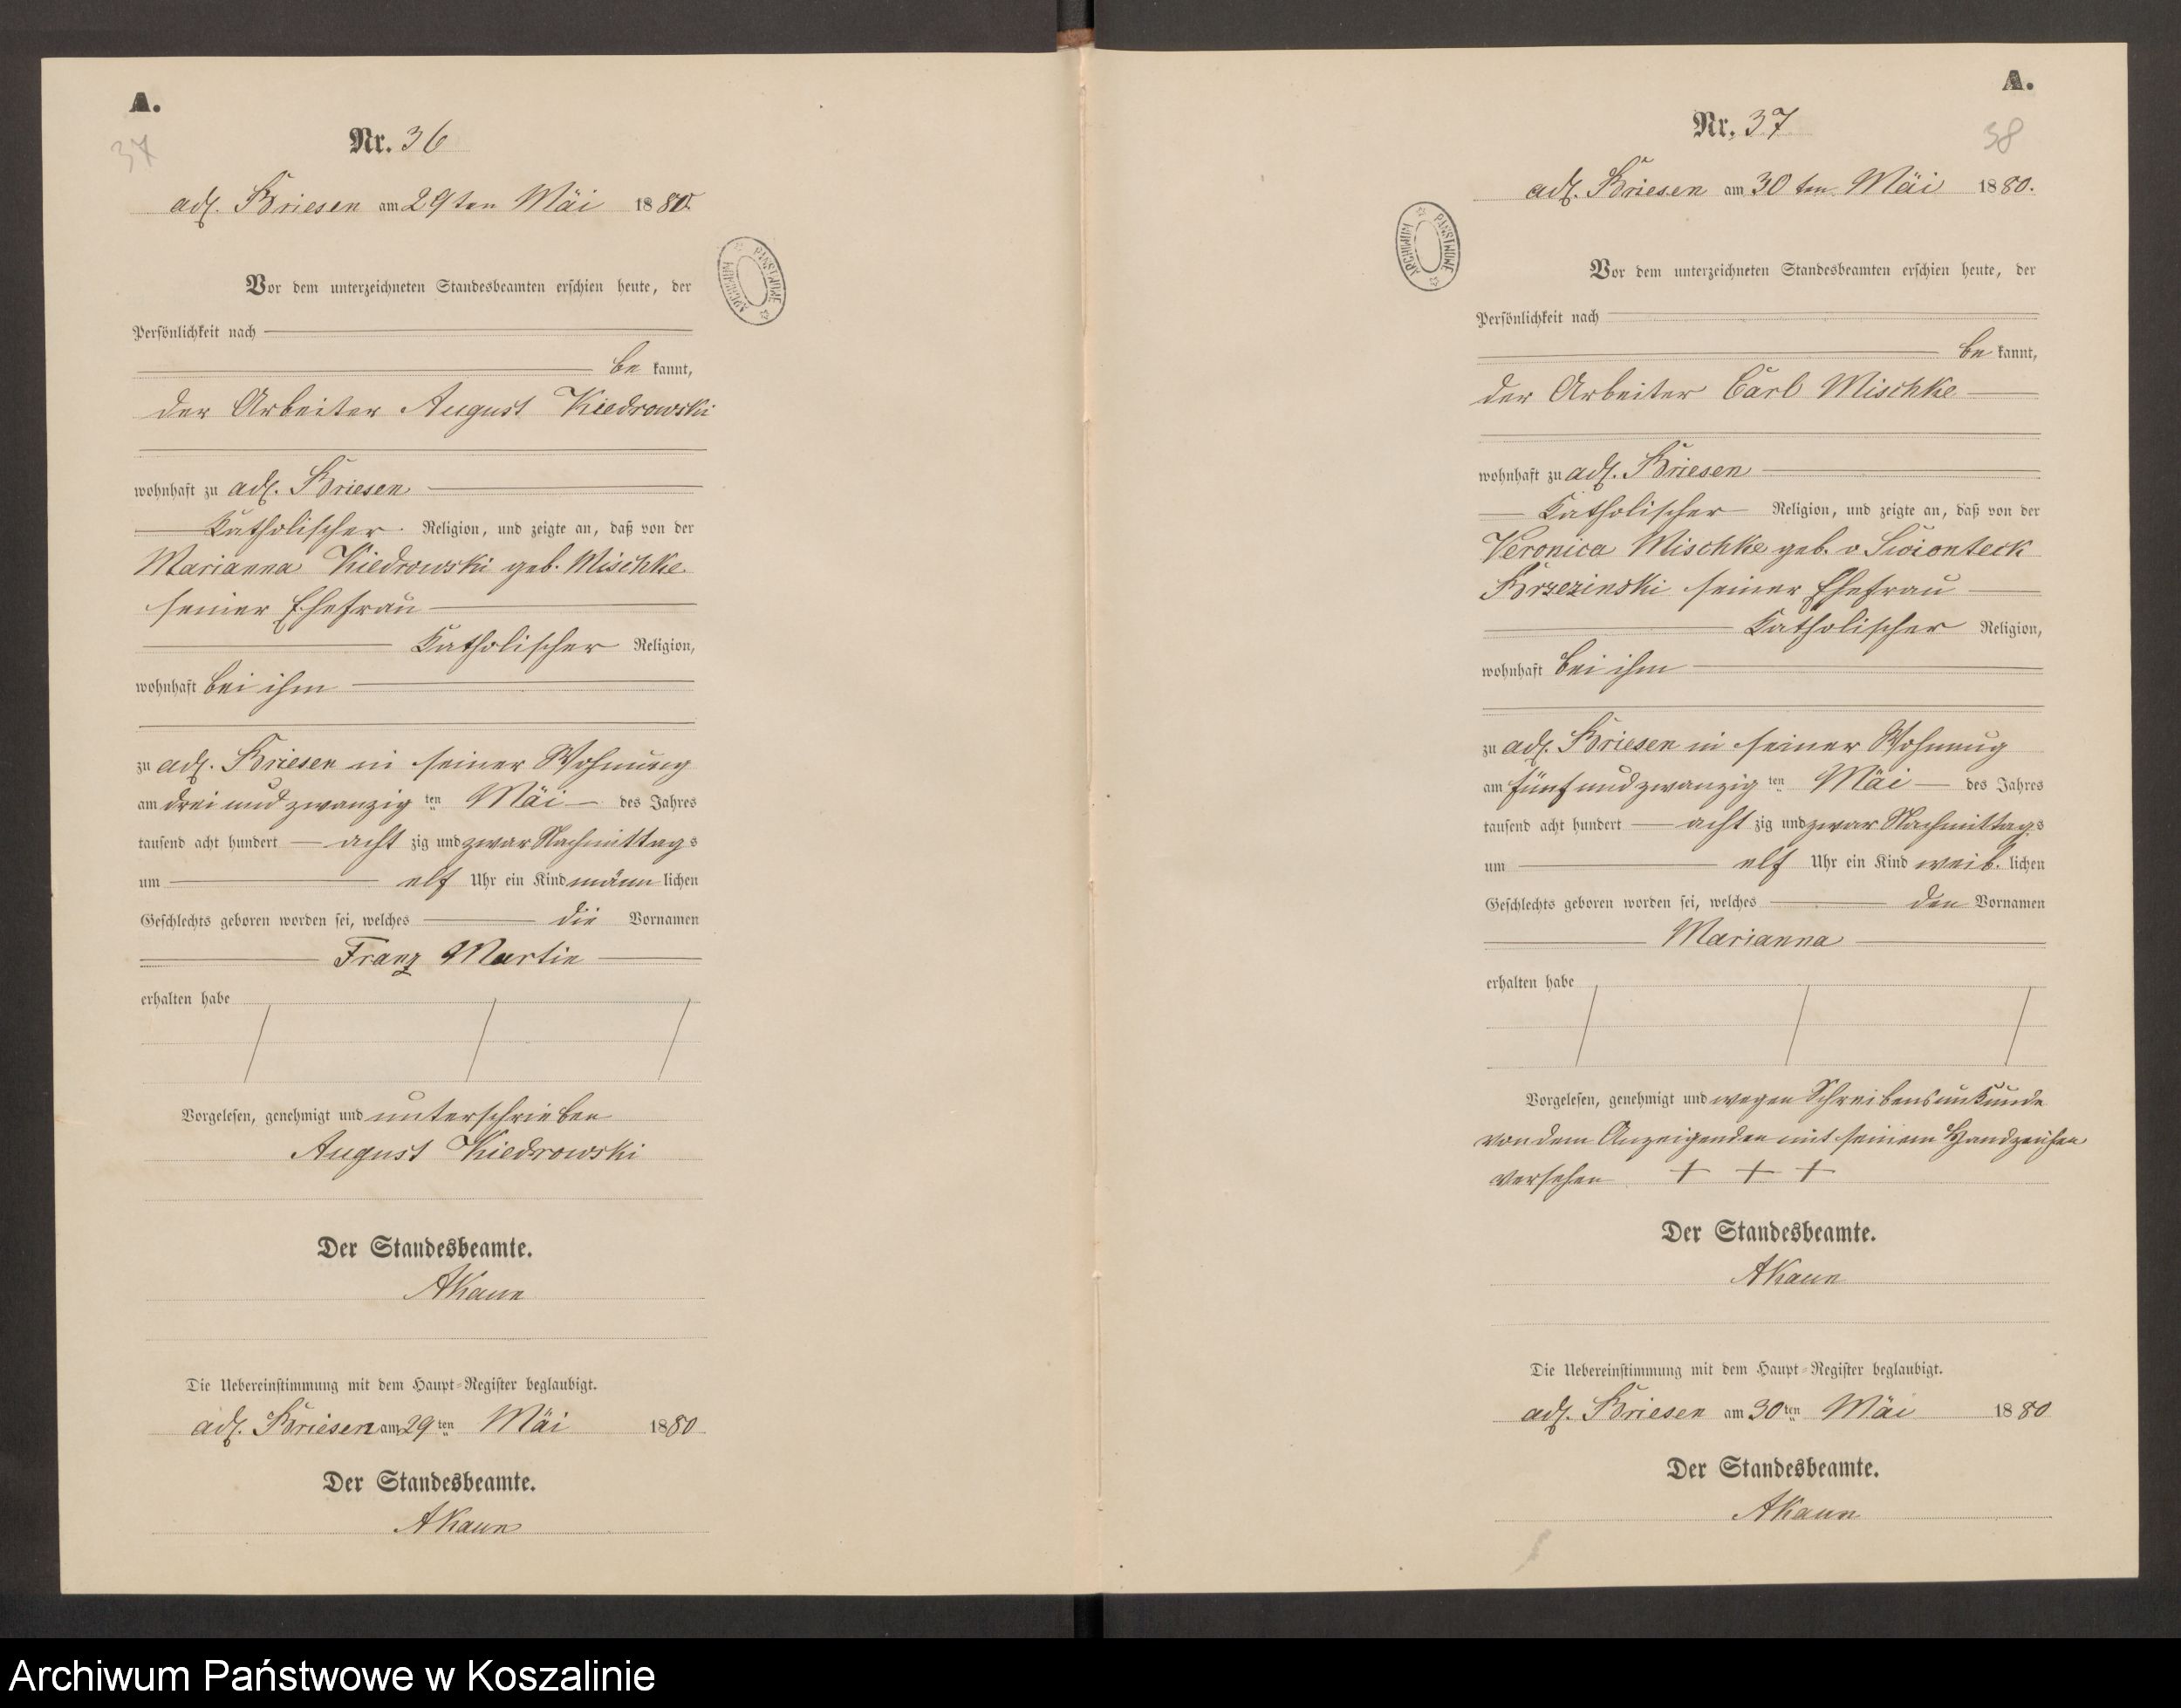 A.
37
Nr. 36
adl. Briesen am 29ten Mai 1880.
Vor dem unterzeichneten Standesbeamten erschien heute, der
Persönlichkeit nach
be kannt,
der Arbeiter August Kiedrowski
wohnhaft zu adl. Briesen
Katholischer Religion, und zeigte an, daß von der
Marianna Kiedrowski geb. Mischke
seiner Ehefrau
Katholischer Religion,
wohnhaft bei ihm
zu adl. Briesen in seiner Wohnung
am drei und zwanzig ten Mai des Jahres
tausend acht hundert acht zig und zwar Nachmittags
um elf Uhr ein Kind männ lichen
Geschlechts geboren worden sei, welches die Vornamen
Franz Martin
erhalten habe
Vorgelesen, genehmigt und unterschrieben
August Kiedrowski
Der Standesbeamte.
AKaun
Die Uebereinstimmung mit dem Haupt-Register beglaubigt.
adl. Briesen am 29ten Mai 1880
Der Standesbeamte.
AKaun
ARCHIWUM PAŃSTWOWE
A.
38
Nr. 37
adl. Briesen am 30ten Mai 1880.
ARCHIWUM PAŃSTWOWE
Vor dem unterzeichneten Standesbeamten erschien heute, der
Persönlichkeit nach
be kannt,
der Arbeiter Carl Mischke
wohnhaft zu adl. Briesen
Katholischer Religion, und zeigte an, daß von der
Veronica Mischke geb. v Swionteck
Brzezinski seiner Ehefrau
Katholischer Religion,
wohnhaft bei ihm
zu adl. Briesen in seiner Wohnung
am fünf und zwanzig ten Mai des Jahres
tausend acht hundert acht zig und zwar Nachmittags
um elf Uhr ein Kind weib. lichen
Geschlechts geboren worden sei, welches den Vornamen
Marianna
erhalten habe
Vorgelesen, genehmigt und wegen Schreibensunkunde
von dem Anzeigenden mit seinem Handzeichen
versehen + + +
Der Standesbeamte.
AKaun
Die Uebereinstimmung mit dem Haupt-Register beglaubigt.
adl. Briesen am 30ten Mai 1880
Der Standesbeamte.
AKaun
Archiwum Państwowe w Koszalinie